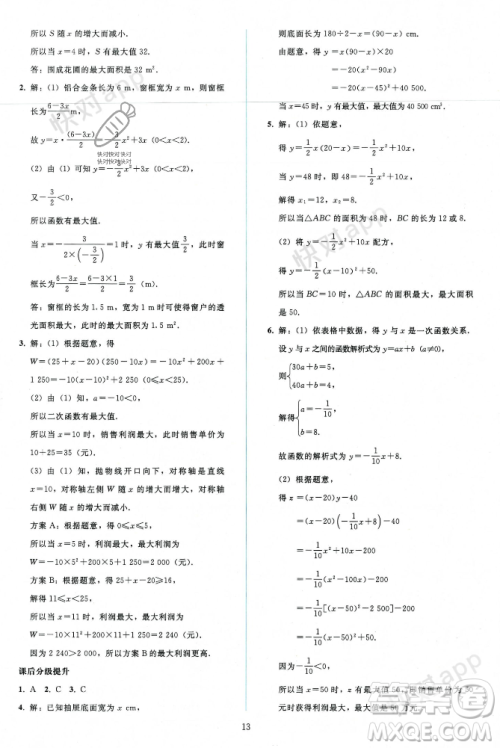 所以 S 随 x 的增大而减小.
所以当 x=4 时，S 有最大值 32.
答：围成花圃的最大面积是 32 m².
2. 解：(1) 铝合金条长为 6 m，窗框宽为 x m，则窗框
长为 (6-3x)/2 m.
故 y=x·(6-3x)/2=-3/2x²+3x (0<x<2).
(2) 由（1）可知 y=-3/2x²+3x (0<x<2),
又-3/2<0,
所以函数有最大值.
当 x=-3/(2×(-3/2))=1 时，y 有最大值，此时窗
框长为 (6-3x)/2=(6-3×1)/2=3/2 (m).
答：窗框的长为 3/2 m、宽为 1 m 时可使窗户的透
光面积最大，最大面积为 1.5 m².
3. 解：(1) 根据题意，得
W=(25+x-20)(250-10x)=-10x²+200x+
1 250=-10(x-10)²+2 250 (0≤x≤25).
(2) 由（1）知，a=-10<0,
所以二次函数有最大值.
所以当 x=10 时，销售利润最大，此时销售单价为
10+25=35(元).
(3) 由（1）知，抛物线开口向下，对称轴为直线
x=10，对称轴左侧 W 随 x 的增大而增大，对称轴
右侧 W 随 x 的增大而减小.
方案 A：根据题意，得 0≤x≤5,
所以当 x=5 时，利润最大，最大利润为
W=-10×5²+200×5+1 250=2 000(元).
方案 B：根据题意，得 25+x-20≥16,
解得 x≥11.
故当 x=11 时，利润最大，最大利润为
W=-10×11²+200×11+1 250=2 240(元).
因为 2 240>2 000，所以方案 B 的最大利润更高.
课后分级提升
1. A 2. C 3. C
4. 解：已知抽屉底面宽为 x cm，
则底面长为 180÷2-x=(90-x)cm.
由题意，得 y=x(90-x)×20
=-20(x²-90x)
=-20(x-45)²+40 500.
当 x=45 时，y 有最大值，最大值为 40 500 cm³.
5. 解：(1) 依题意，
得 y=1/2x(20-x)=-1/2x²+10x.
当 y=48 时，即 48=-1/2x²+10x,
解得 x₁=12，x₂=8.
所以当△ABC 的面积为 48 时，BC 的长为 12 或 8.
(2) 将 y=-1/2x²+10x 配方，
得 y=-1/2(x-10)²+50.
所以当 BC=10 时，△ABC 的面积最大，最大面积
是 50.
6. 解：(1) 依表格中数据，得 y 与 x 是一次函数关系.
设 y 与 x 之间的函数解析式为 y=ax+b (a≠0),
则{30a+b=5, 40a+b=4.
解得{a=-1/10, b=8.
故函数的解析式为 y=-1/10x+8.
(2) 根据题意，得 z=(x-20)y-40
=(x-20)(-1/10x+8)-40
=-1/10x²+10x-200
=-1/10(x²-100x)-200
=-1/10[(x-50)²-2 500]-200
=-1/10(x-50)²+50.
因为-1/10<0,
所以当 x=50 时，z
元时净利润最大，最大值是
13
快对app
快对app
快对app
快对app
快对快对快对
快对快对快对
答案圈
MXQE.COM